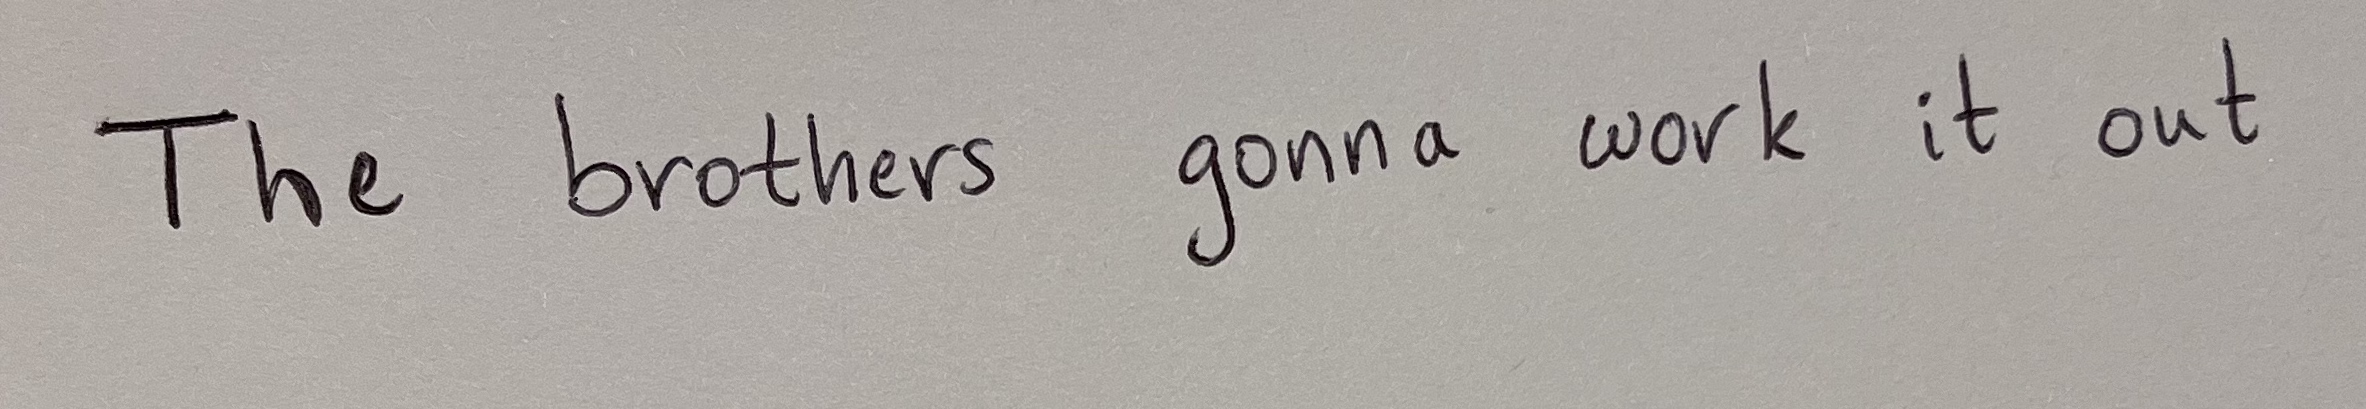 The brothers gonna work it out